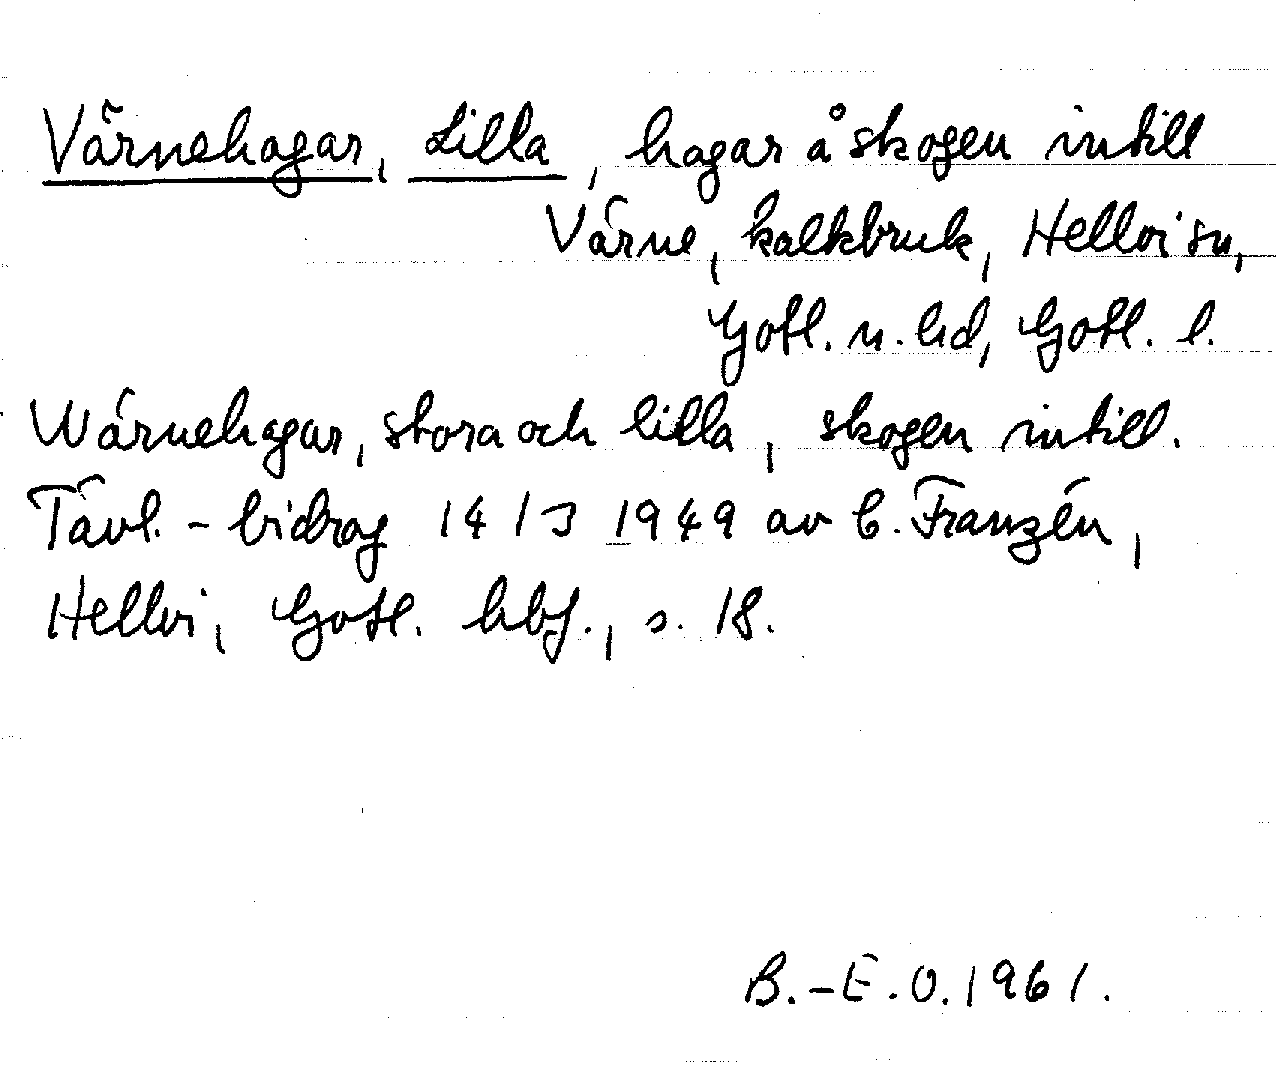 Värnehagar, Lilla, hagar å skogen intill
Värne, kalkbruk, Hellvi sn,
Gotl. n. hd, Gotl. l.
Wärnehagar, stora och lilla, skogen intill.
Tävl. - bidrag 14/3 1949 av C. Franzén,
Hellvi, Gotl. hbf., s. 18.
B.-E. O. 1961.